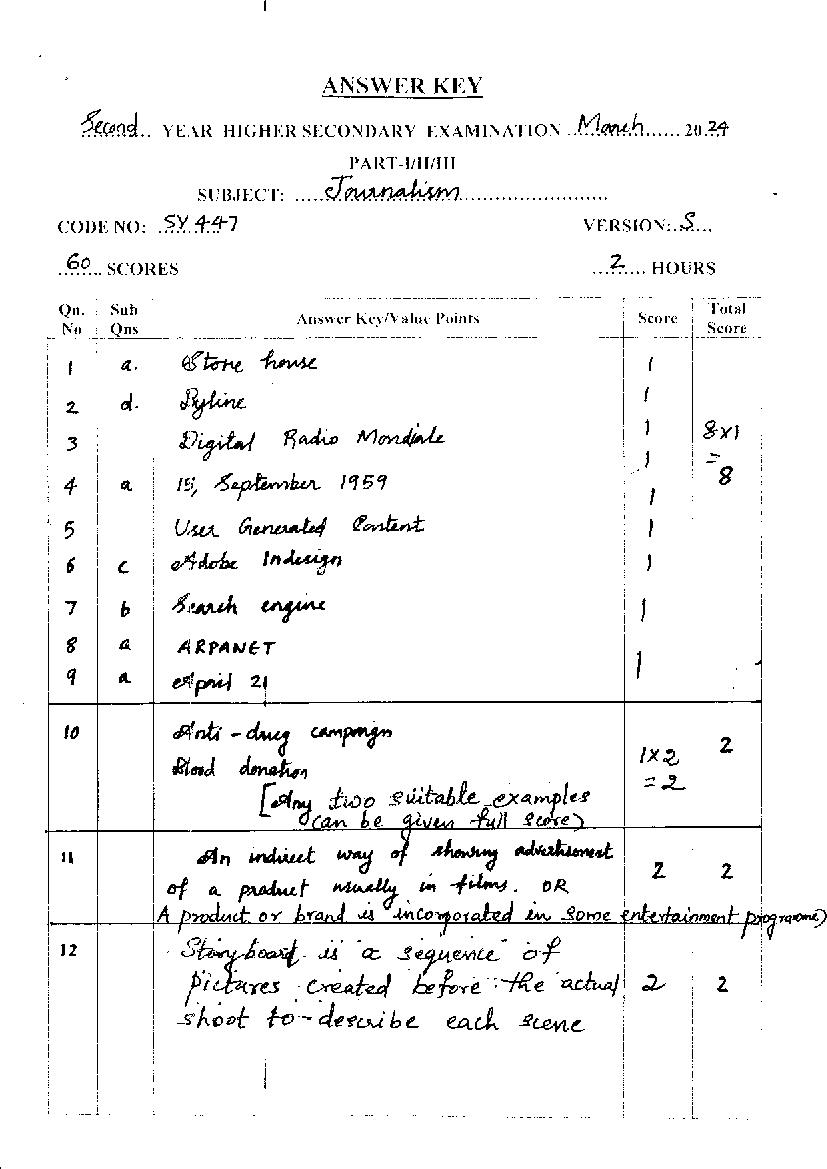 ANSWER KEY
Second.. YEAR HIGHER SECONDARY EXAMINATION ..March...... 20 24
PART-I/II/III
SUBJECT: .....Journalism.........................
CODE NO: SY 447 VERSION:..S...
..60.... SCORES ....2..... HOURS
Qn. No Sub Qns Answer Key/Value Points Score Total Score
1 a. Store house 1
2 d. Byline 1
3 Digital Radio Mondiale 1 8x1
4 a 15, September 1959 1 = 8
5 User Generated Content 1
6 c Adobe Indesign 1
7 b Search engine 1
8 a ARPANET 1
9 a April 21 1
10 Anti-drug campaign 2
Blood donation 1x2
[Any two suitable examples = 2
can be given full score)
11 An indirect way of showing advertisement
of a product usually in films. OR 2 2
A product or brand is incorporated in some entertainment programme)
12 Storyboard is a sequence of
pictures created before the actual 2 2
shoot to describe each scene